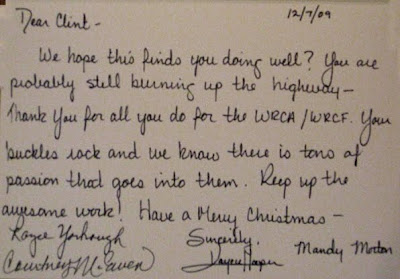 12/7/09
Dear Clint -
We hope this finds you doing well? You are
probably still burning up the highway -
Thank You for all you do for the WRCA/WRCF. Your
buckles rock and we know there is tons of
passion that goes into them. Keep up the
awesome work! Have a Merry Christmas -
Sincerely,
Mandy Morton
Courtney